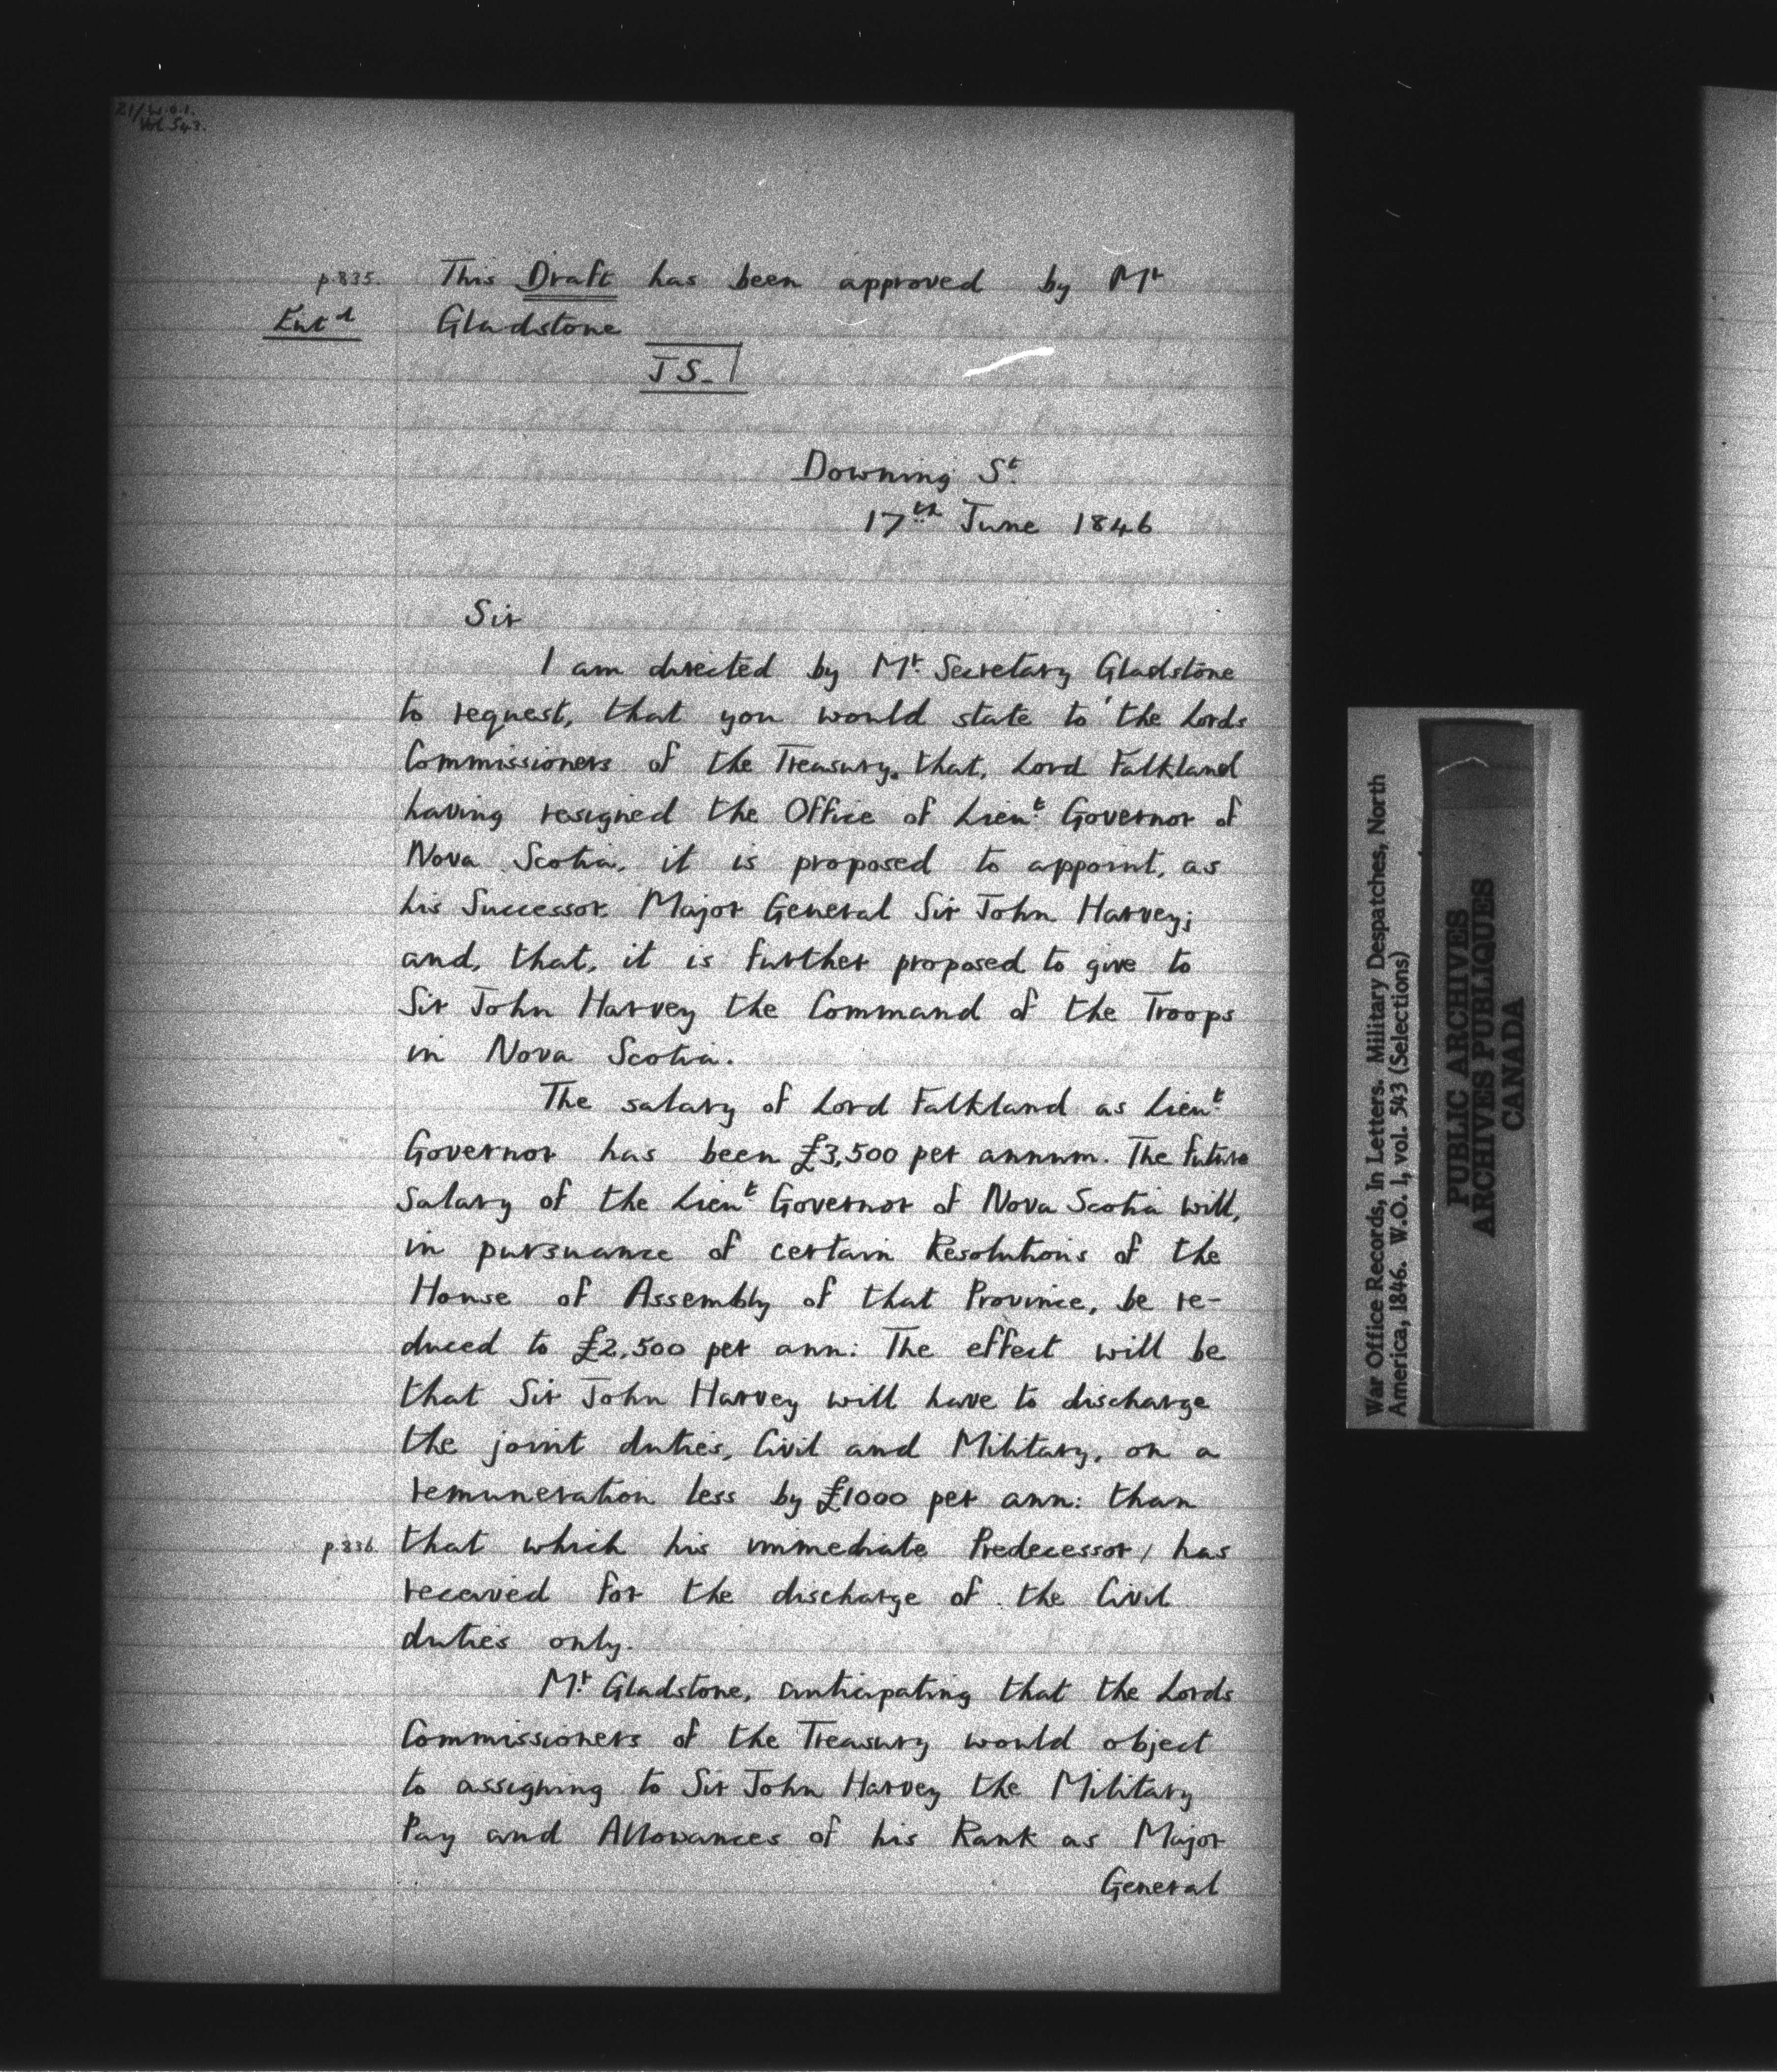 21/W.O.1.
Vol. 543.
p.835. This Draft has been approved by Mr
Entd Gladstone
JS-
Downing St.
17th June 1846
Sir
I am directed by Mr. Secretary Gladstone
to request, that you would state to the Lords
Commissioners of the Treasury, that, Lord Falkland
having resigned the Office of Lieut. Governor of
Nova Scotia, it is proposed to appoint, as
his Successor Major General Sir John Harvey;
and, that, it is further proposed to give to
Sir John Harvey the Command of the Troops
in Nova Scotia.
The salary of Lord Falkland as Lieut.
Governor has been £3,500 per annum. The future
Salary of the Lieut. Governor of Nova Scotia will,
in pursuance of certain Resolutions of the
House of Assembly of that Province, be re-
duced to £2,500 per ann: The effect will be
that Sir John Harvey will have to discharge
the joint duties, Civil and Military, on a
remuneration less by £1000 per ann: than
p.836 that which his immediate Predecessor / has
received for the discharge of the Civil
duties only.
Mr. Gladstone, anticipating that the Lords
Commissioners of the Treasury would object
to assigning to Sir John Harvey the Military
Pay and Allowances of his Rank as Major
General
War Office Records, In Letters. Military Despatches, North
America, 1846. W.O. 1, vol. 543 (Selections)
PUBLIC ARCHIVES
ARCHIVES PUBLIQUES
CANADA